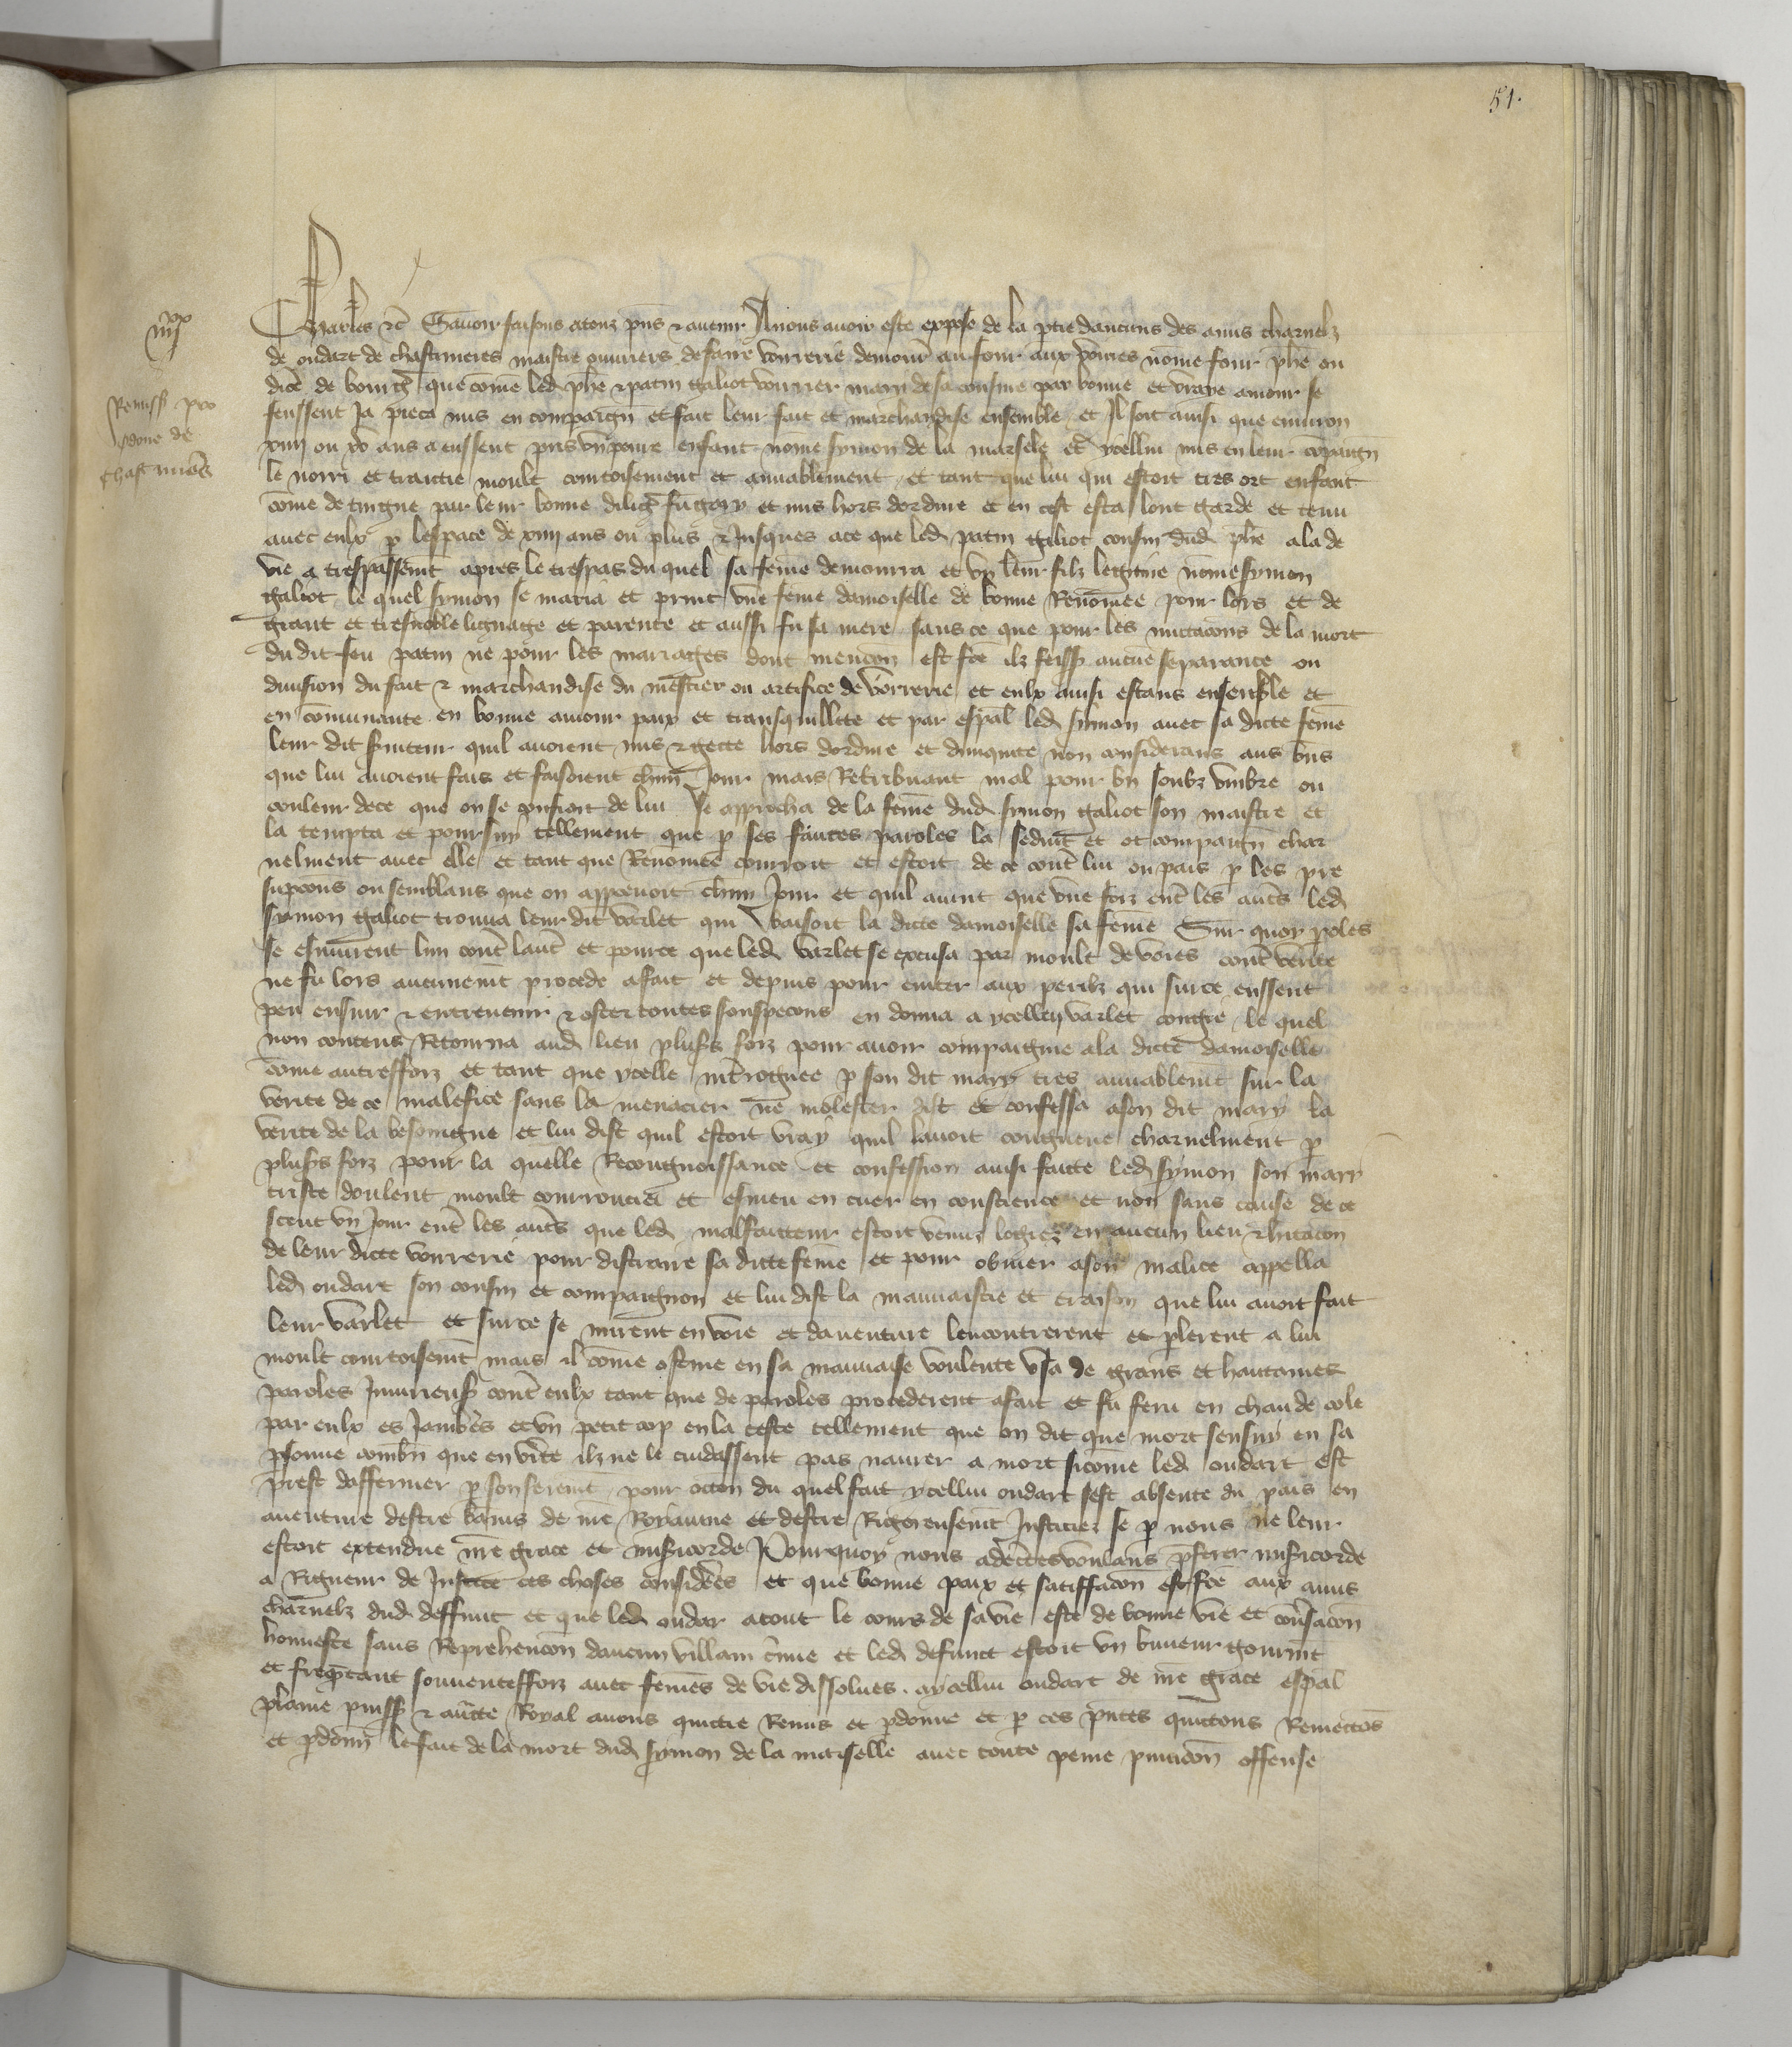 51.
Charles etc Savoir faisons atouz pñs & avenir Anous avoir este expose de la ptie daucuns des amis charnelz
de oudart de chastiueres maistre ouvriers defaire vourrerie demour au four aux poures nōme four phē ou
dioc de bourg que cōme led phē & patin galiot vourrier mary desa cousine par bonne et vraye amour se
feussent Ja pieca mis en compaign et fait leur fait et marchandise ensemble et Il soit ainsi que environ
xiiij ou xv ans a eussent pris vn poure enfant nome symon de la marsele et ycellui mis en leur cōpaign
le norri et traictie moult courtoisement et amiablement et tant que lui qui estoit tres ort enfant
cōme de tingne par leur bonne dilig fu gary et mis hors dordure et en cest estat lont garde et tenu
avec eulx p lespace de xiiij ans ou plus & Jusques ace que led patin galiot cousin dud phē ala de
vie a trespassemt apres le trespas du quel sa feme demoura et vn leur filz legitime nōme symon
galiot le quel symon se maria et print vne feme damoiselle de bonne Renōmee pour lors et de
grant et tresnoble lignage et parente et aussi fu sa mere sans ce que pour les mutacōns de la mort
du dit feu patin ne pour les mariages dont mencōn est fcē ilz feiss aucune separance ou
division du fait & marchandise du mestier ou artifice de vorrerie et eulx ainsi estans ensemble et
en cōmunaute en bonne amour paix et transquillite et par espāl led symon avec sa dicte feme
leur dit sviteur quil avoient mis & gecte hors dordure et diniquite non considerans aus bñs
que lui avoient fais et faisoient chun Jour mais Retribuant mal pour bñ soubz vmbre ou
couleur dece que on se confioit de lui se approcha de la feme dud symon galiot son maistre et
la tempta et poursuy tellement que p ses fauces paroles la seduit et ot compaign char
nelment avec elle et tant que Renomee couroit et estoit de ce contē lui ou pais p les pre
supcōns ou semblans que on appcevoit chun Jour et quil avint que vne foiz entē les autrs led
symon galiot trouva leur dit varlet qui baisoit la dicte damoiselle sa feme Sur quoy poles
se esmurent lun contē lautē et pource que led varlet se excusa par moult de voies contē verite
ne fu lors aucunemt procede afait et depuis pour eviter aux perilz qui surce eussent
peu ensuir & entrevenir & oster toutes souspecōns en donna a ycelluy varlet congie le quel
non contens Retourna aud lieu pluss foiz pour avoir compaignie ala dicte damoiselle
cōme autresfoiz et tant que ycelle intrroguee p son dit mary tres amiablemt sur la
verite de ce malefice sans la menacier ne molester dist et confessa ason dit mary la
verite de la besoingne et lui dist quil estoit vray quil lavoit congneue charnelment p
pluss foiz pour la quelle Recongnoissance et confession ainsi faicte led symon son mary
triste doulent moult courroucie et esmeu en cuer en conscience et non sans cause de ce
sceut vn Jour entē les autrs que led malfaicteur estoit venuz logiez en aucun lieu & hitacōn
de leur dicte vourrerie pour distraire sa dicte feme et pour obvier ason malice appella
led oudart son cousin et compaignon et lui dist la mauvaistie et traison que lui avoit fait
leur varlet et surce se mirent en voie et daventure lencontrerent et plerent a lui
moult courtoisemt mais il cōme oferme en sa mauvaise voulente vsa de grans et hautaines
paroles Jniurieuss contē eulx tant que de paroles procederent afait et fu feru en chaude cole
par eulx es Jambes et vn petit cop en la teste tellement que on dit que mort sensuy en sa
psonne combñ que en vite ilz ne le cuidassent pas navrer a mort sicōme led oudart est
prest daffermer p son seremt pour occōn du quel fait ycellui oudart sest absente du pais en
aventure destre bānis de nrē Royaume et destre Rigoreusemt Justiciez se p nous ne leur
estoit extendue nrē grace et misicorde Pourquoy nous adecertes voulans pferer misicorde
a Rigueur de Justice ces choses considerēs et que bonne paix et satiffacōn est fcē aux amis
charnelz dud deffunt et que led oudar atout le cours de sa vie este de bonne vie et convsacōn
honneste sans Reprehencōn daucun villain crime et led defunct estoit vn buveur gourmt
et freqntant souventesfoiz avec femes de vie dissolues. aycellui oudart de nrē grace espāl
plaine puiss & auctte Royal avons quictie Remis et pdonne et p ces pñtes quictons Remectōs
et pdonn le fait de la mort dud symon de la marselle avec toute peine punicōn offense
iiijxx
Remiss pro
odone de
chastiuers